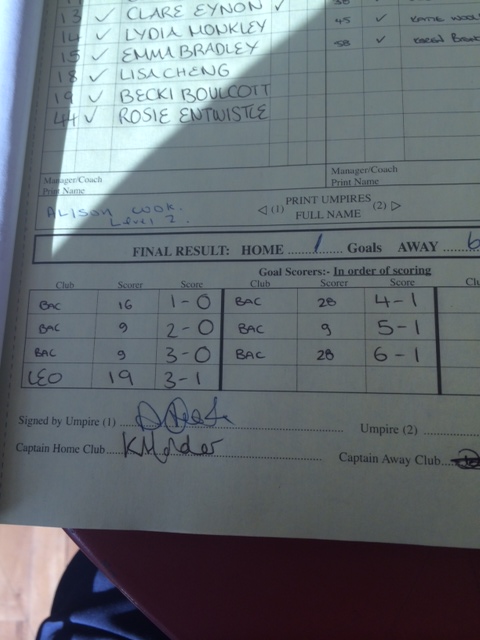 13 ✓ CLARE EYNON ✓
14 ✓ LYDIA MONKLEY
15 ✓ EMMA BRADLEY
18 ✓ LISA CHENG
19 ✓ BECKI BOULCOTT
44 ✓ ROSIE ENTWISTLE
45 ✓ KATIE
58 ✓ KAREN
Manager/Coach
Print Name
Manager/Coach
Print Name
ALISON COOK.
Level 2.
◁ (1) PRINT UMPIRES (2) ▷
FULL NAME
FINAL RESULT: HOME 1 Goals AWAY 6
Goal Scorers:- In order of scoring
Club Scorer Score Club Scorer Score
BAC 16 1-0 BAC 28 4-1
BAC 9 2-0 BAC 9 5-1
BAC 9 3-0 BAC 28 6-1
LEO 19 3-1
Signed by Umpire (1) Umpire (2)
Captain Home Club Captain Away Club